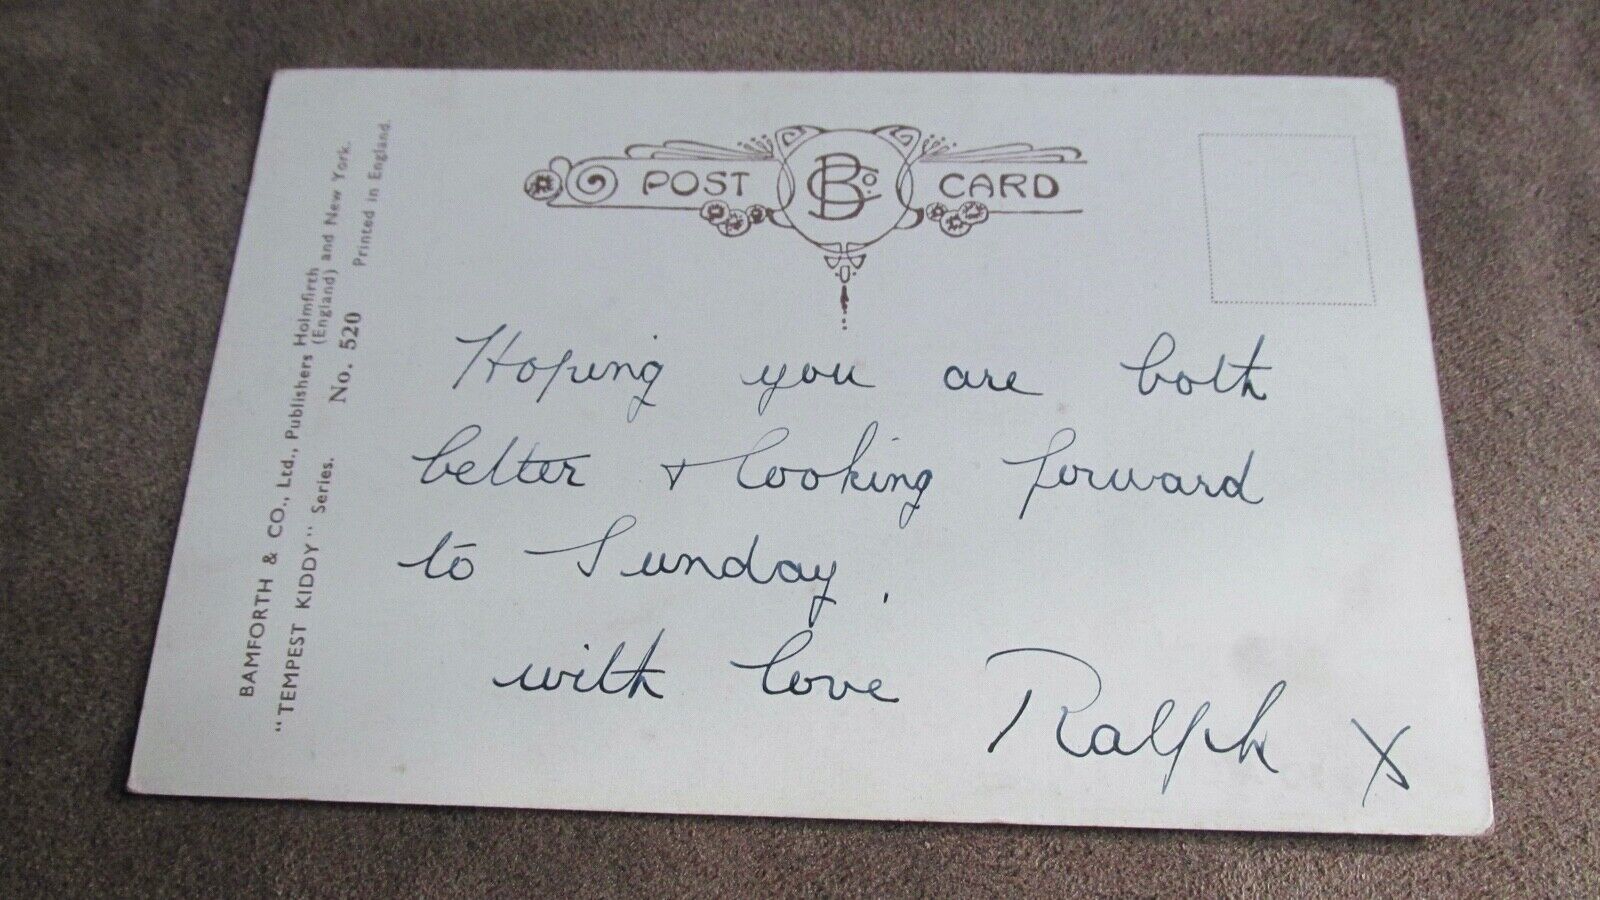 POST B Co. CARD
BAMFORTH & CO., Ltd., Publishers Holmfirth
(England) and New York.
"TEMPEST KIDDY" Series. No. 520 Printed in England.
Hoping you are both
better & looking forward
to Sunday.
with love Ralph X